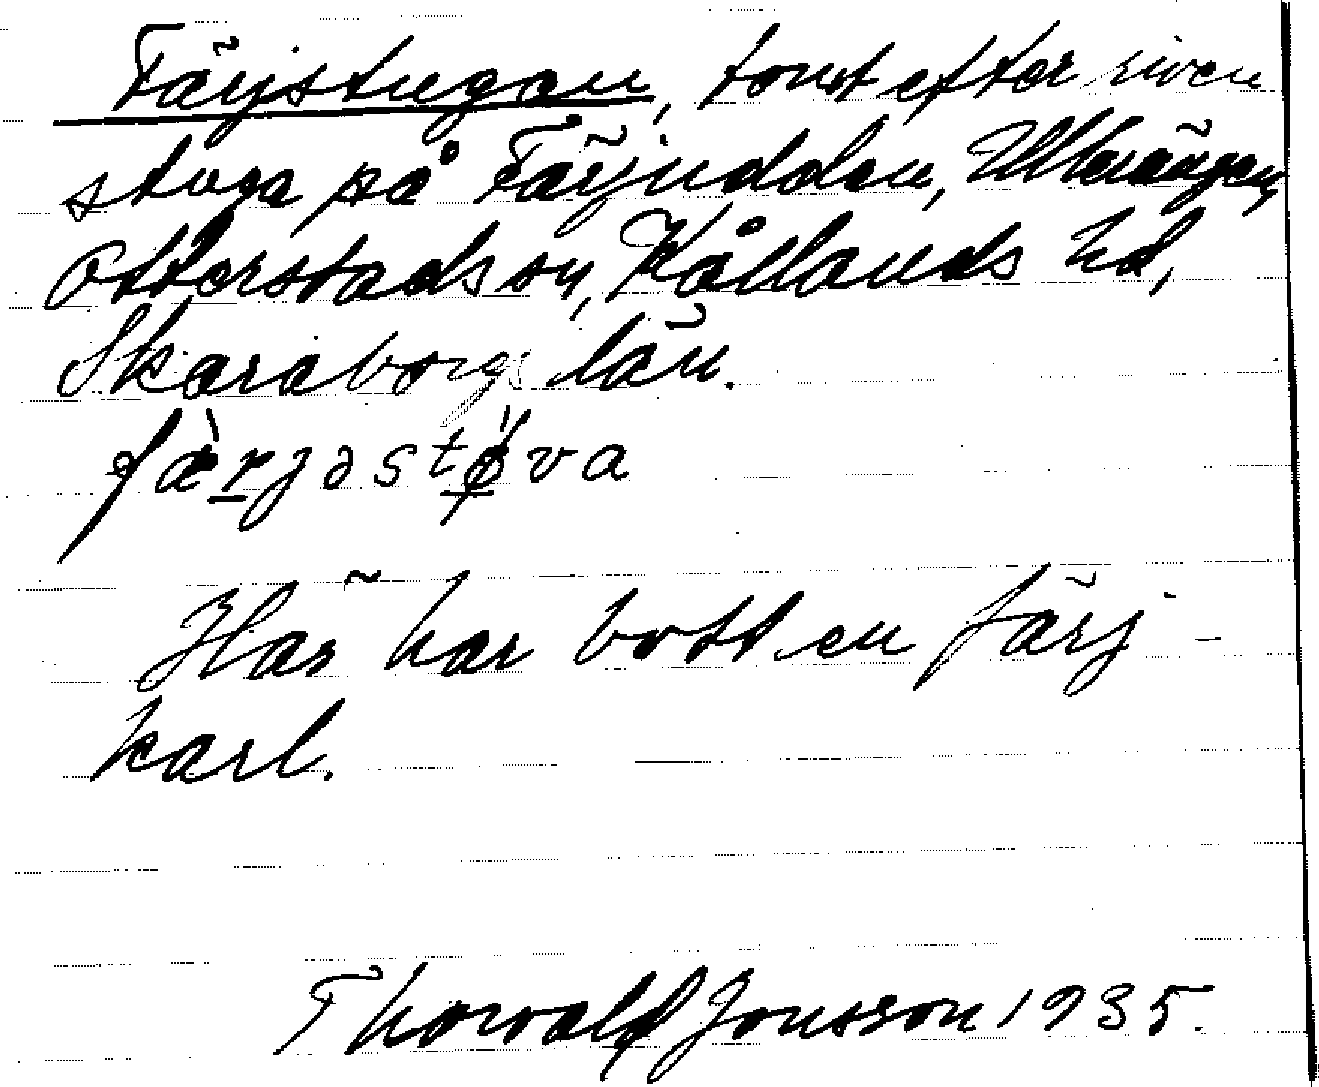 Färjstugan, tomt efter riven
stuga på Färjudden, Ullerängen,
Otterstads sn, Kållands hd,
Skaraborgs län.
fæ̀rjəstǿva
Här har bott en färj-
karl.
Thorvald Jonsson 1935.